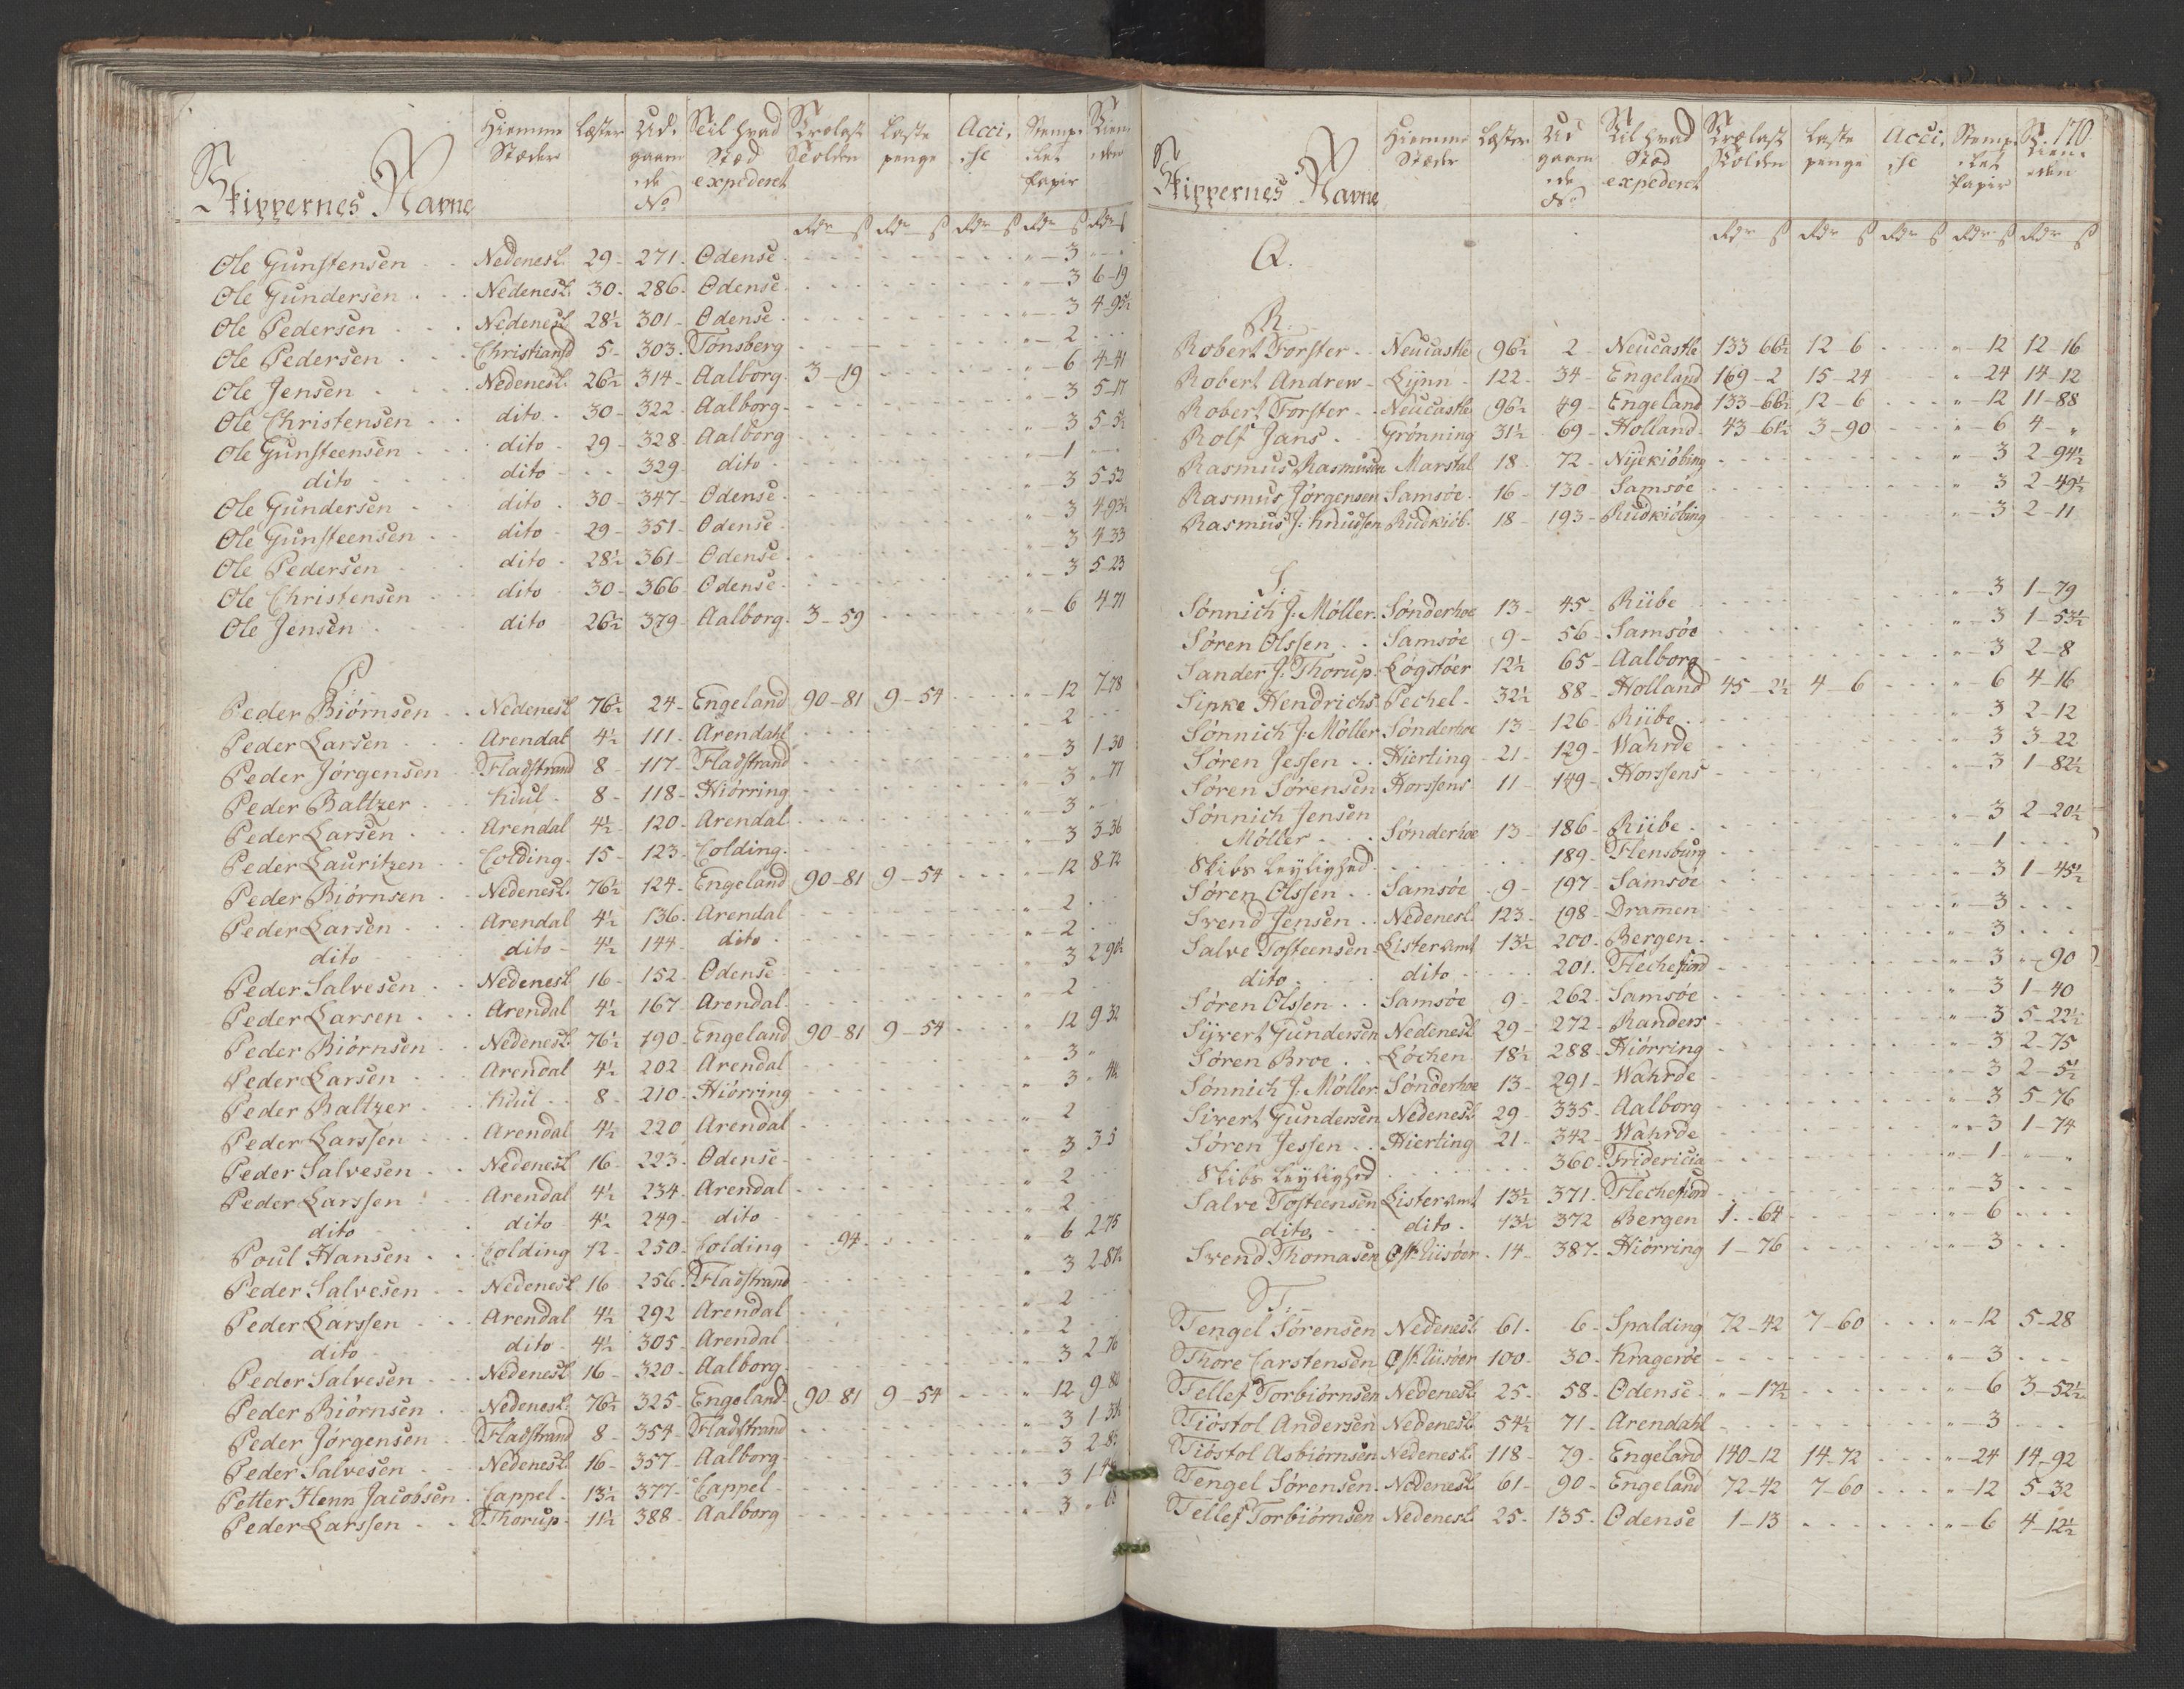 Skippernes Navne | Hiemme Stæder | Læster | Ud gaaen de No | Til hvad Stæd expederet | Trælast Tolden | Laste penge | Acci se | Stemp let Papir | Kien den
Rdr ß | Rdr ß | Rdr ß | Rdr ß | Rdr ß
Ole Gunstensen Nedenesl. 29 271 Odense 3
Ole Gundersen Nedenesl. 30 286 Odense 3 6-19
Ole Pedersen Nedenesl 28½ 301 Odense 3 4-95½
Ole Pedersen Christiansd 5 303 Tønsberg 2
Ole Jensen Nedenesl. 26½ 314 Aalborg 3-19 6 4-41
Ole Christensen dito 30 322 Aalborg 3 5-17
Ole Gunsteensen dito 29 328 Aalborg 3 5-5½
dito dito 329 dito 1
Ole Gundersen dito 30 347 Odense 3 5-52
Ole Gunsteensen dito 29 351 Odense 3 4-93½
Ole Pedersen dito 28½ 361 Odense 3 4-33
Ole Christensen dito 30 366 Odense 3 5-23
Ole Jensen dito 26½ 379 Aalborg 3-59 6 4-71
P.
Peder Biørnsen Nedenesl 76½ 24 Engeland 90-81 9-54 12 7-78
Peder Larsen Arendal 4½ 111 Arendahl 2
Peder Jørgensen Fladstrand 8 117 Fladstrand 3 1-30
Peder Baltzer Kiul 8 118 Hiørring 3 77
Peder Larsen Arendal 4½ 120 Arendal 3
Peder Lauritzen Colding 15 123 Colding 3 3-36
Peder Biørnsen Nedenesl. 76½ 124 Engeland 90-81 9-54 12 8-72
Peder Larsen Arendal 4½ 136 Arendal 2
dito dito 4½ 144 dito 2
Peder Salvesen Nedenesl 16 152 Odense 3 2-90½
Peder Larsen Arendal 4½ 167 Arendal 2
Peder Biørnsen Nedenesl. 76½ 190 Engeland 90-81 9-54 12 9-32
Peder Larsen Arendal 4½ 202 Arendal 3
Peder Baltzer Kiul 8 210 Hiørring 3
Peder Larssen Arendal 4½ 220 Arendal 2
Peder Salvesen Nedenesl 16 223 Odense 3 3-5
Peder Larssen Arendal 4½ 234 Arendal 2
dito dito 4½ 249 dito 2
Poul Hansen Colding 12 250 Colding 94 6 2-75
Peder Salvesen Nedenesl 16 256 Fladstrand 3 2-87½
Peder Larssen Arendal 4½ 292 Arendal 2
dito dito 4½ 305 Arendal 2
Peder Salvesen Nedenesl 16 320 Aalborg 3 2-76
Peder Biørnsen Nedenesl. 76½ 325 Engeland 90-81 9-54 12 9-80
Peder Jørgensen Fladstrand 8 354 Fladstrand 3
Peder Salvesen Nedenesl. 16 357 Aalborg 3
Petter Henn Jacobsen Cappel 13½ 377 Cappel 3
Peder Larssen Thorup 11½ 388 Aalborg 3
170
Skippernes Navne | Hiemme Stæder | Læster | Ud gaaen de No | Til hvad Stæd expederet | Trælast Tolden | Laste penge | Acci se | Stemp let Papir | Kien den
Rdr ß | Rdr ß | Rdr ß | Rdr ß | Rdr ß
Q.
R.
Robert Forster Neucastle 96½ 2 Neucastle 133-66½ 12-6 12 12-16
Robert Andrew Lynn 122 34 Engeland 169-2 15-24 24 14-12
Robert Forster Neucastle 96½ 49 Engeland 133-66½ 12-6 12 11-88
Rolf Jans Grønning 31½ 69 Holland 43-61½ 3-90 6 4
Rasmus Rasmussen Marstal 18 72 Nyekiøbing 3 2-94½
Rasmus Jørgensen Samsøe 16 130 Samsøe 3 2-49½
Rasmus J: Knudsen Rudkiøb. 18 193 Rudkiøbing 3 2-11
S.
Sønnich J: Møller Sønderhoe 13 45 Riibe 3 1-79
Søren Olssen Samsøe 9 56 Samsøe 3 1-53½
Sander J: Thorup Løgstøer 12½ 65 Aalborg 3 2-8
Sipke Hendrichs Pechel 32½ 88 Holland 45-2½ 4-6 6 4-16
Sønnich J: Møller Sønderhoe 13 126 Riibe 3 2-12
Søren Jessen Hierting 21 129 Wahrde 3 3-22
Søren Sørensen Horssens 11 149 Horssens 3 1-82½
Sønnich Jensen
Møller Sønderhoe 13 186 Riibe 3 2-20½
Skibs Leylighed 189 Flensburg 1
Søren Olssen Samsøe 9 197 Samsøe 3 1-45½
Svend Jensen Nedenesl. 123 198 Dramen 3
Salve Tosteensen Lister amt 13½ 200 Bergen 3
dito dito 201 Flechefiord 3 90
Søren Olssen Samsøe 9 262 Samsøe 3 1-40
Syvert Gundersen Nedenesl 29 272 Randers 3 5-22½
Søren Broe Løchen 18½ 288 Hiørring 3 2-75
Sønnich J: Møller Sønderhoe 13 291 Wahrde 3 2-5½
Sivert Gundersen Nedenesl. 29 335 Aalborg 3 5-76
Søren Jessen Hierting 21 342 Wahrde 3 1-74
Skibs Leylighed 360 Fridericia 1
Salve Tosteensen Lister amt 13½ 371 Flechefiord 3
dito dito 13½ 372 Bergen 1-64 6
Svend Thomasen Østriisøer 14 387 Hiørring 1-76 3
T.
Tengel Sørensen Nedenesl. 61 6 Spalding 72-42 7-60 12 5-28
Thore Carstensen Østriisøer 100 30 Kragerøe 3
Tellef Torbiørnsen Nedenesl. 25 58 Odense 17½ 6 3-52½
Tiøstol Andersen Nedenesl. 54½ 71 Arendahl 3
Tiøstol Asbiørnsen Nedenesl. 118 79 Engeland 140-12 14-72 24 14-92
Tengel Sørensen Nedenesl 61 90 Engeland 72-42 7-60 12 5-32
Tellef Torbiørnsen Nedenesl. 25 135 Odense 1-13 6 4-12½